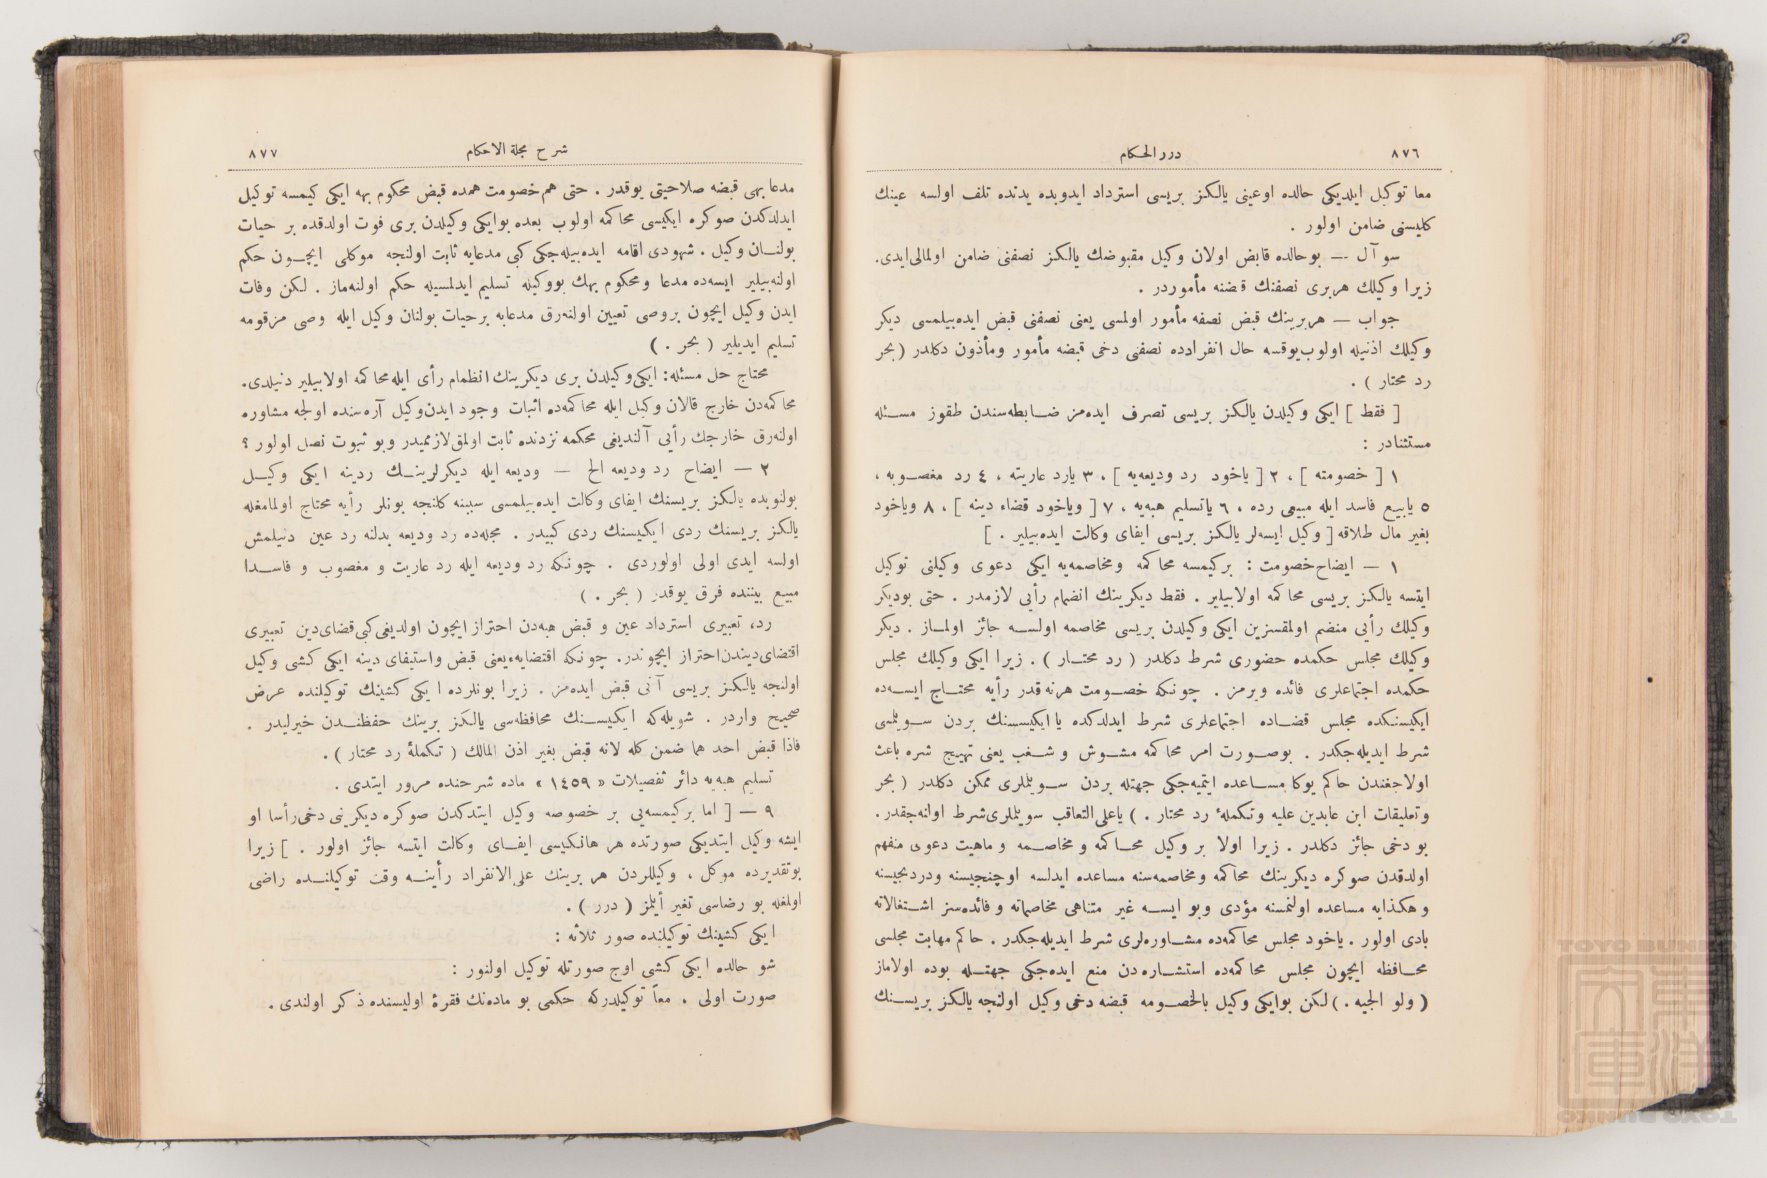 ٨٧٦
درر الحكام
معا توكيل ايلديكى حالده اوعينى يالكز بريسى استرداد ايدوبده يدنده تلف اولسه عينك
كليسنى ضامن اولور .
سو آل — بوحالده قابض اولان وكيل مقبوضك يالكز نصفنى ضامن اولمالى‌ايدى.
زيرا وكيلك هربرى نصفنك قبضنه مأموردر .
جواب — هربرينك قبض نصفه مأمور اولمسى يعنى نصفنى قبض ايده‌بيلمسى ديكر
وكيلك اذنيله اولوب‌يوقسه حال انفرادده نصفنى دخى قبضه مأمور ومأذون دكلدر (بحر
رد محتار ) .
[ فقط ] ايكى وكيلدن يالكز بريسى تصرف ايده‌مز ضابطه‌سندن طقوز مسئله
مستثنادر :
١ [ خصومته ] ، ٢ [ ياخود رد وديعه‌يه ] ، ٣ يارد عاريته ، ٤ رد مغصوبه ،
٥ يابيع فاسد ايله مبيعى رده ، ٦ ياتسليم هبه‌يه ، ٧ [ وياخود قضاء دينه ] ، ٨ وياخود
بغير مال طلاقه [ وكيل ايسه‌لر يالكز بريسى ايفاى وكالت ايده‌بيلير . ]
١ — ايضاح‌خصومت : بركيمسه محاكمه ومخاصمه‌يه ايكى دعوى وكيلنى توكيل
ايتسه يالكز بريسى محاكمه اولابيلير . فقط ديكرينك انضمام رأيى لازمدر . حتى بوديكر
وكيلك رأيى منضم اولمقسزين ايكى وكيلدن بريسى مخاصمه اولسه جائز اولماز . ديكر
وكيلك مجلس حكمده حضورى شرط دكلدر ( رد محتار ) . زيرا ايكى وكيلك مجلس
حكمده اجتماعلرى فائده ويرمز . چونكه خصومت هرنه‌قدر رأيه محتاج ايسه‌ده
ايكيسنكده مجلس قضاده اجتماعلرى شرط ايدلدكده يا ايكيسنك بردن سويلمسى
شرط ايديله‌جكدر . بوصورت امر محاكمه مشوش و شغب يعنى تهييج شره باعث
اولاجغندن حاكم بوكا مساعده ايتميه‌جكى جهتله بردن سويلملرى ممكن دكلدر ( بحر
وتعليقات ابن عابدين عليه وتكملهٔ رد محتار . ) ياعلى‌التعاقب سويلملرى‌شرط اولنه‌جقدر.
بو دخى جائز دكلدر . زيرا اولا بر وكيل محاكمه و مخاصمه و ماهيت دعوى منفهم
اولدقدن صوكره ديكرينك محاكمه ومخاصمه‌سنه مساعده ايدلسه اوچنجيسنه ودردنجيسنه
وهكذايه مساعده اولنمسنه مؤدى وبو ايسه غير متناهى مخاصماته و فائده‌سز اشتغالاته
بادى اولور . ياخود مجلس محاكمه‌ده مشاوره‌لرى شرط ايديله‌جكدر . حاكم مهابت مجلسى
محافظه ايچون مجلس محاكمه‌ده استشاره‌دن منع ايده‌جكى جهتله بوده اولاماز
( ولو الجيه . ) لكن بوايكى وكيل بالخصومه قبضه دخى وكيل اولنجه يالكز بريسنك
شرح مجلة الاحكام
٨٧٧
مدعا بهى قبضه صلاحيتى يوقدر . حتى هم خصومت همده قبض محكوم بهه ايكى كيمسه توكيل
ايدلدكدن صوكره ايكيسى محاكمه اولوب بعده بوايكى وكيلدن برى فوت اولدقده بر حيات
بولنان وكيل . شهودى اقامه ايده‌بيله‌جكى كبى مدعابه ثابت اولنجه موكلى ايچون حكم
اولنه‌بيلير ايسه‌ده مدعا ومحكوم بهك بووكيله تسليم ايدلمسيله حكم اولنه‌ماز . لكن وفات
ايدن وكيل ايچون بروصى تعيين اولنه‌رق مدعابه برحيات بولنان وكيل ايله وصى مزقومه
تسليم ايديلير ( بحر . )
محتاج حل مسئله: ايكى‌وكيلدن برى ديكرينك انظمام رأى ايله‌محاكمه اولابيلير دنيلدى.
محاكمه‌دن خارج قالان وكيل ايله محاكمه‌ده اثبات وجود ايدن‌وكيل آره‌سنده اولجه مشاوره
اولنه‌رق خارجك رأيى آلنديغى محكمه نزدنده ثابت اولمق‌لازمميدر وبو ثبوت نصل اولور ؟
٢ — ايضاح رد وديعه الخ — وديعه ايله ديكرلرينك ردينه ايكى وكيل
بولنوبده يالكز بريسنك ايفاى وكالت ايده‌بيلمسى سببنه كلنجه بونلر رأيه محتاج اولمامغله
يالكز بريسنك ردى ايكيسنك ردى كبيدر . مجله‌ده رد وديعه بدلنه رد عين دنيلمش
اولسه ايدى اولى اولوردى . چونكه رد وديعه ايله رد عاريت و مغصوب و فاسدا
مبيع بيننده فرق يوقدر ( بحر . )
رد، تعبيرى استرداد عين و قبض هبه‌دن احتراز ايچون اولديغى‌كبى‌قضاى‌دين تعبيرى
اقتضاى‌ديندن‌احتراز ايچوندر. چونكه اقتضايه،يعنى قبض واستيفاى دينه ايكى كشى وكيل
اولنجه يالكز بريسى آنى قبض ايده‌مز . زيرا بونلرده ايكى كشينك توكيلنده غرض
صحيح واردر . شويله‌كه ايكيسنك محافظه‌سى يالكز برينك حفظندن خيرليدر .
فاذا قبض احد هما ضمن كله لانه قبض بغير اذن المالك ( تكملهٔ رد محتار ) .
تسليم هبه‌يه دائر تفصيلات « ١٤٥٩ » ماده شرحنده مرور ايتدى .
٩ — [ اما بركيمسه‌يى بر خصوصه وكيل ايتدكدن صوكره ديكرينى دخى‌رأسا او
ايشه وكيل ايتديكى صورتده هر هانكيسى ايفاى وكالت ايتسه جائز اولور . ] زيرا
بوتقديرده موكل ، وكيللردن هر برينك على‌الانفراد رأينه وقت توكيلنده راضى
اولمغله بو رضاسى تغير ايلمز ( درر ) .
ايكى كشينك توكيلنده صور ثلاثه :
شو حالده ايكى كشى اوچ صورتله توكيل اولنور :
صورت اولى . معاً توكيلدركه حكمى بو ماده‌نك فقرهٔ اوليسنده ذكر اولندى .
TOYO BUNKO